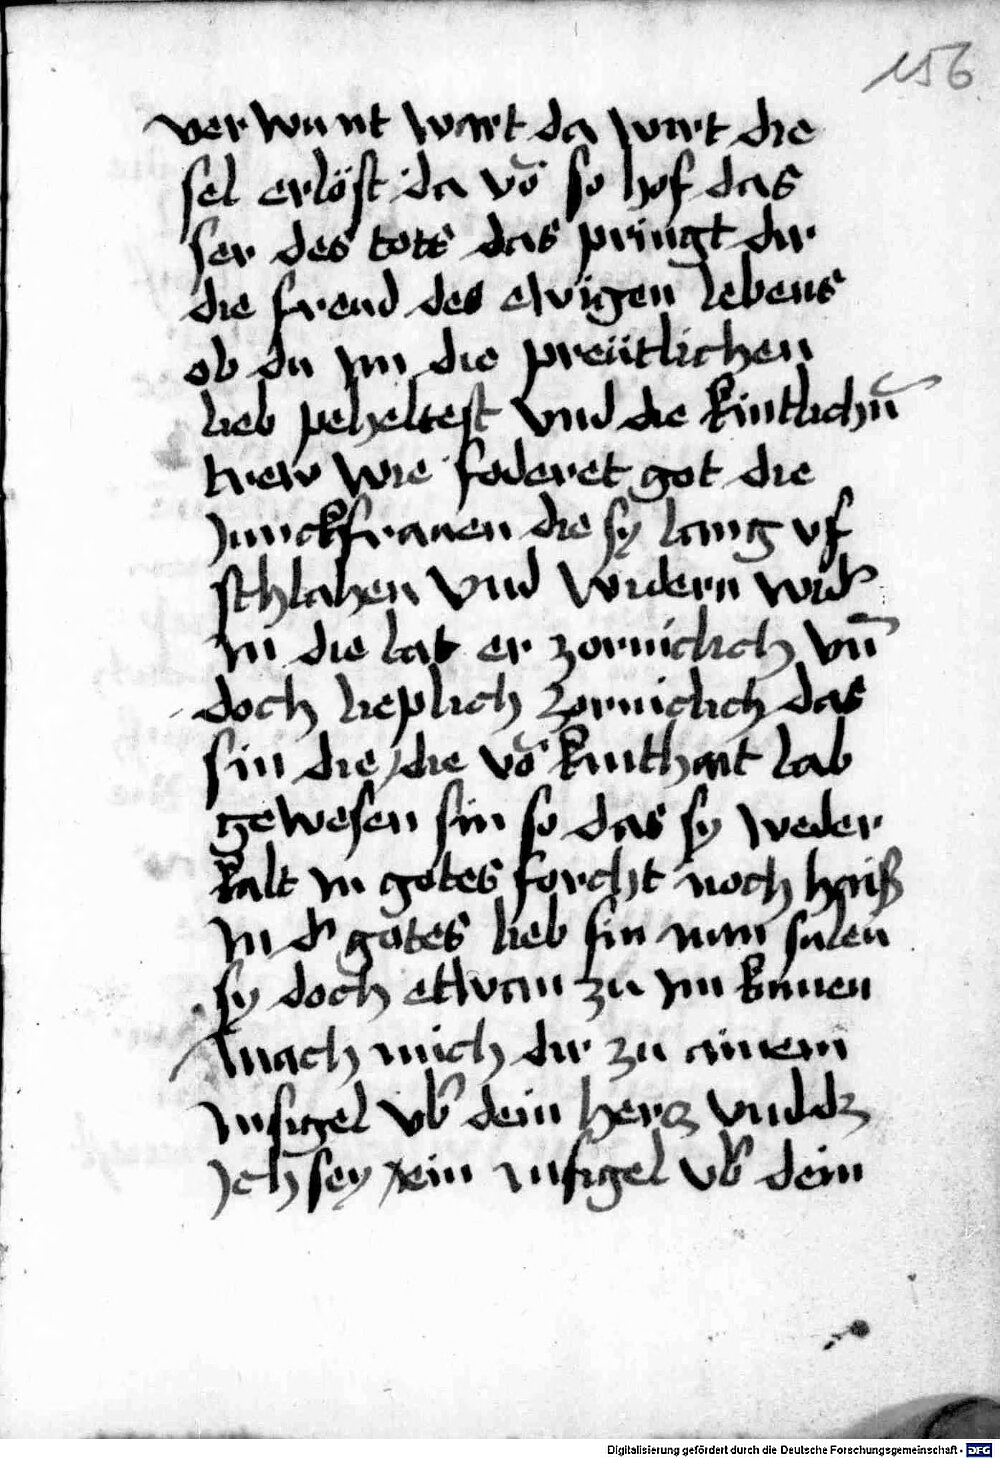 156
verwunt wart da wirt die
sel erlöst da vō so hof das
ser des tots das pringt dir
die freud des ewigen lebens
ob du im die preütlichen
lieb peheltest vnd die kintlichñ
trew wie foderet got die
junckfrauen die sy lang vf
schlahen vnd widern wid'
in die lat er zorniclich vn̄
doch lieplich zorniclich das
sin die / die vō kinthait lab
gewesen sin so das sy weder
kalt in gotes forcht noch haiß
in d' gotes lieb sin nun sulen
sy doch etwan zu im kumen
Mach mich dir zu ainem
insigel vb' dein hercz vnd dz
ich sey ein insigel vb' dein
Digitalisierung gefördert durch die Deutsche Forschungsgemeinschaft - DFG